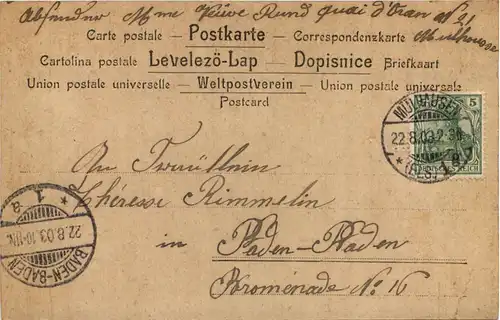 Absender Mme Veuve Rund quai d'Oran No 21
Mulhouse
Carte postale – Postkarte – Correspondenzkarte
Cartolina postale Levelező-Lap – Dopisnice Briefkaart
Union postale universelle – Weltpostverein – Union postale universale
Postcard
MÜLHAUSEN
22.8.03.2-3N
* (ELS) 1 a
5
DEUTSCHES REICH
An Fräulein
Thérèse Rimmelin
in Baden-Baden
Promenade No 16
* 1 a
22.8.03.10-11N.
BADEN-BADEN